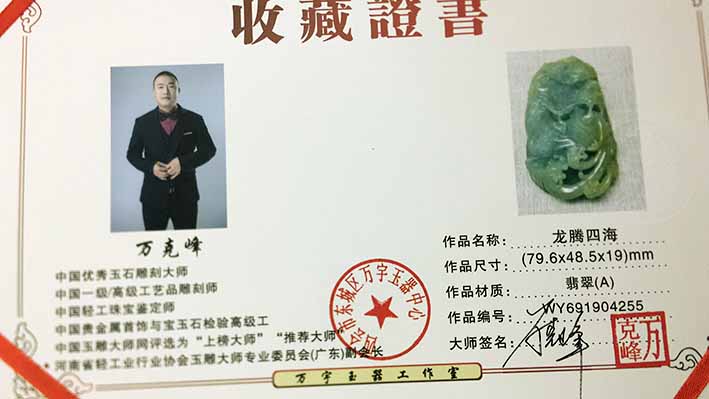 收藏證書
万克峰
中国优秀玉石雕刻大师
中国一级/高级工艺品雕刻师
中国轻工珠宝鉴定师
中国贵金属首饰与宝玉石检验高级工
中国玉雕大师网评选为“上榜大师”“推荐大师”
河南省轻工业行业协会玉雕大师专业委员会(广东)副会长
作品名称: 龙腾四海
作品尺寸: (79.6x48.5x19)mm
作品材质: 翡翠(A)
作品编号: WY691904255
大师签名:
万克峰
四会市东城区万宇玉器中心
万宇玉器工作室